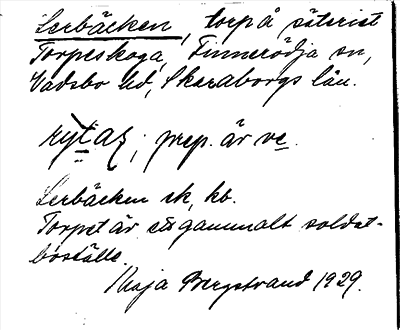 Lerbäcken, torp å säteriet
Torpeskoga, Finnerödja sn,
Vadsbo hd, Skaraborgs län.
prep. är
Lerbäcken ek, kb.
Torpet är ett gammalt soldat-
boställe.
Maja Bergstrand 1929.